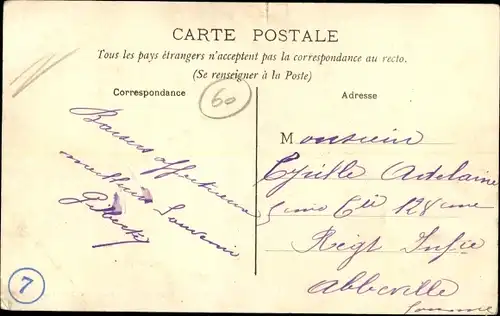 CARTE POSTALE
Tous les pays étrangers n'acceptent pas la correspondance au recto.
(Se renseigner à la Poste)
Correspondance
60
Adresse
Baisers affectueux
meilleur Souvenir
Monsieur
Cyrille Adelaine
5ème Cie 128ème
Régt Infie
Abbeville
Somme
7